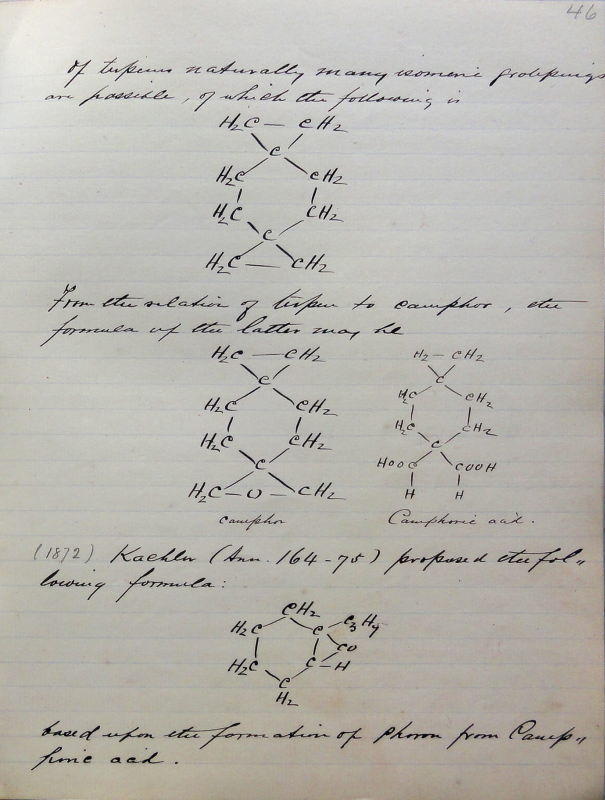 46
Of terpenes naturally many isomeric groupings
are possible, of which the following is
H2C — CH2
C
H2C CH2
H2C CH2
C
H2C — CH2
From the relation of terpen to camphor, the
formula of the latter may be
H2C — CH2 H2 — CH2
C C
H2C CH2 H2C CH2
H2C CH2 H2C CH2
C C
H2C — O — CH2 HOOC COOH
H H
camphor Camphoric acid.
(1872) Kachler (Ann. 164-75) proposed the fol„
lowing formula:
CH2
H2C C C3H7
CO
H2C C — H
C
H2
based upon the formation of phoron from Camp„
horic acid.